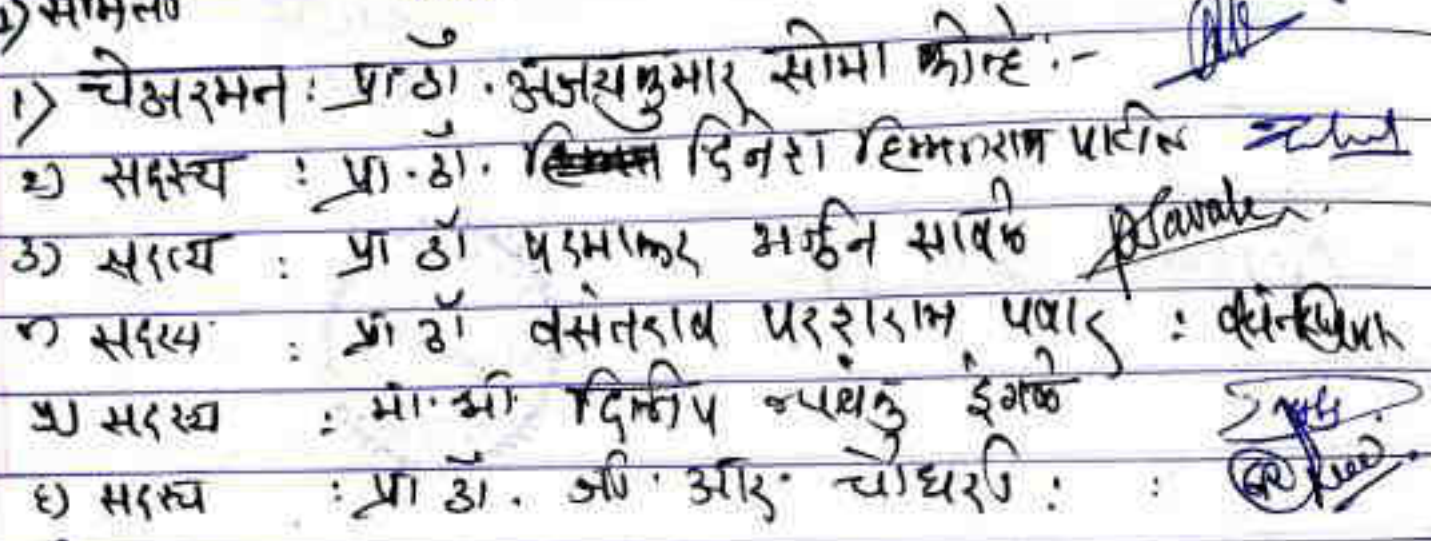 १) चेअरमन : प्रा. डॉ. अजयकुमार सोमा कोल्हे :-
२) सदस्य : प्रा. डॉ. दिनेश हिम्मतराव पाटील
३) सदस्य : प्रा डॉ पद्माकर अर्जुन सावळे
४) सदस्य : प्रा डॉ वसंतराव परशराम पवार :
५) सदस्य : मा. श्री दिलीप इंगळे
६) सदस्य : प्रा डॉ. जी. आर. चौधरी : :